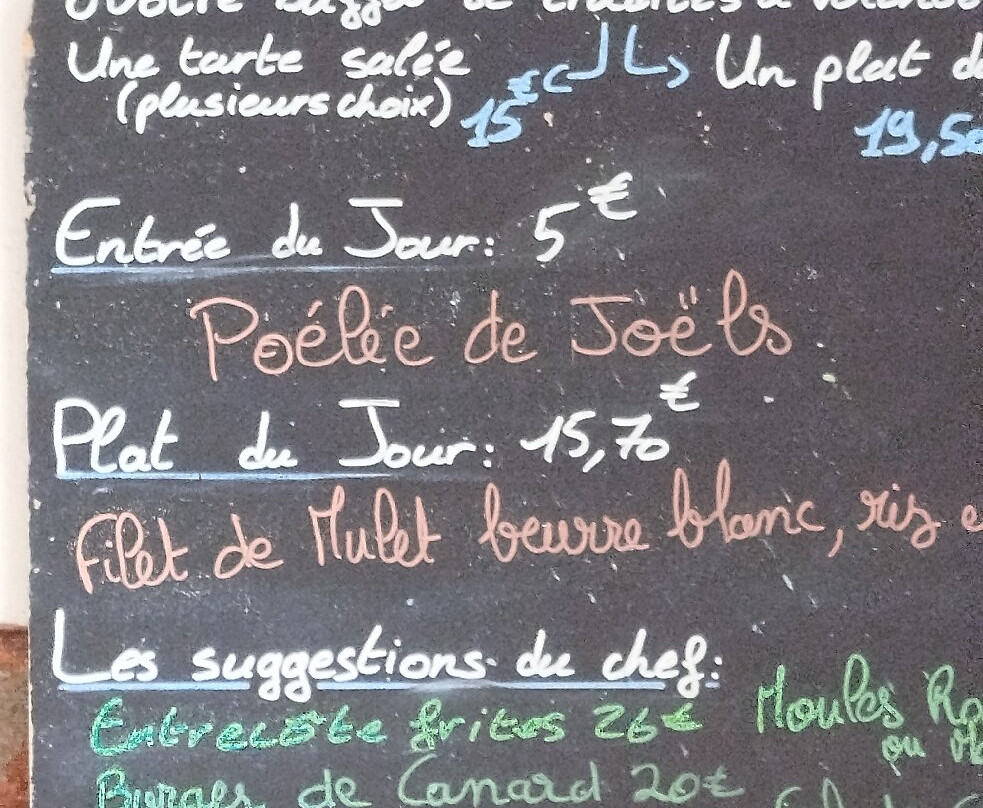 Une tarte salée Un plat d
(plusieurs choix) 15€ 19,50
Entrée du Jour: 5€
Poélée de Joëls
Plat du Jour: 15,70€
Filet de Mulet beurre blanc, riz e
Les suggestions du chef:
Entrecôte frites 26€ Moules Ro
ou
Burger de Canard 20€